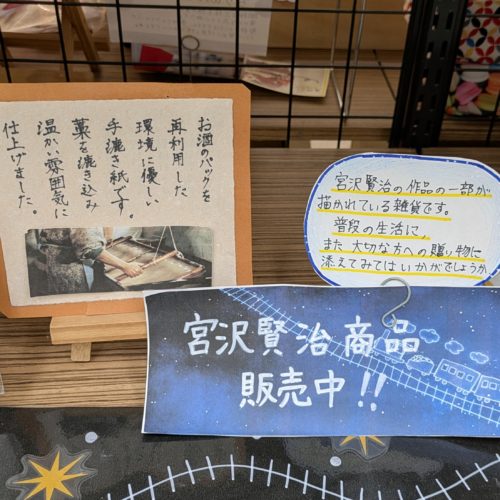 お酒のパックを
再利用した
環境に優しい
手漉き紙です。
藁を漉き込み
温かい雰囲気に
仕上げました。
宮沢賢治の作品の一部が
描かれている雑貨です。
普段の生活に、
また大切な方への贈り物に
添えてみてはいかがでしょうか
宮沢賢治商品
販売中!!